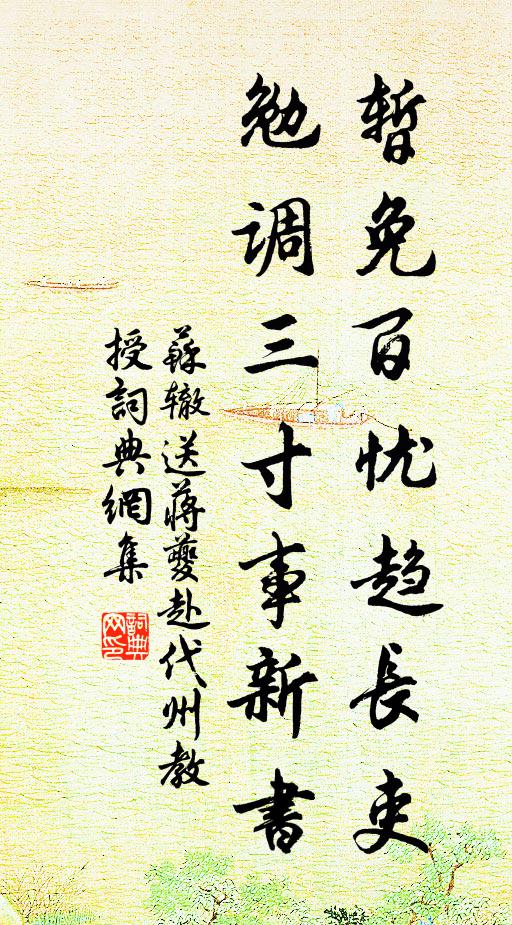 暂免百忧趋長吏
勉调三寸事新書
蘇辙送蔣夔赴代州教
授詞典網集
詞典
网印